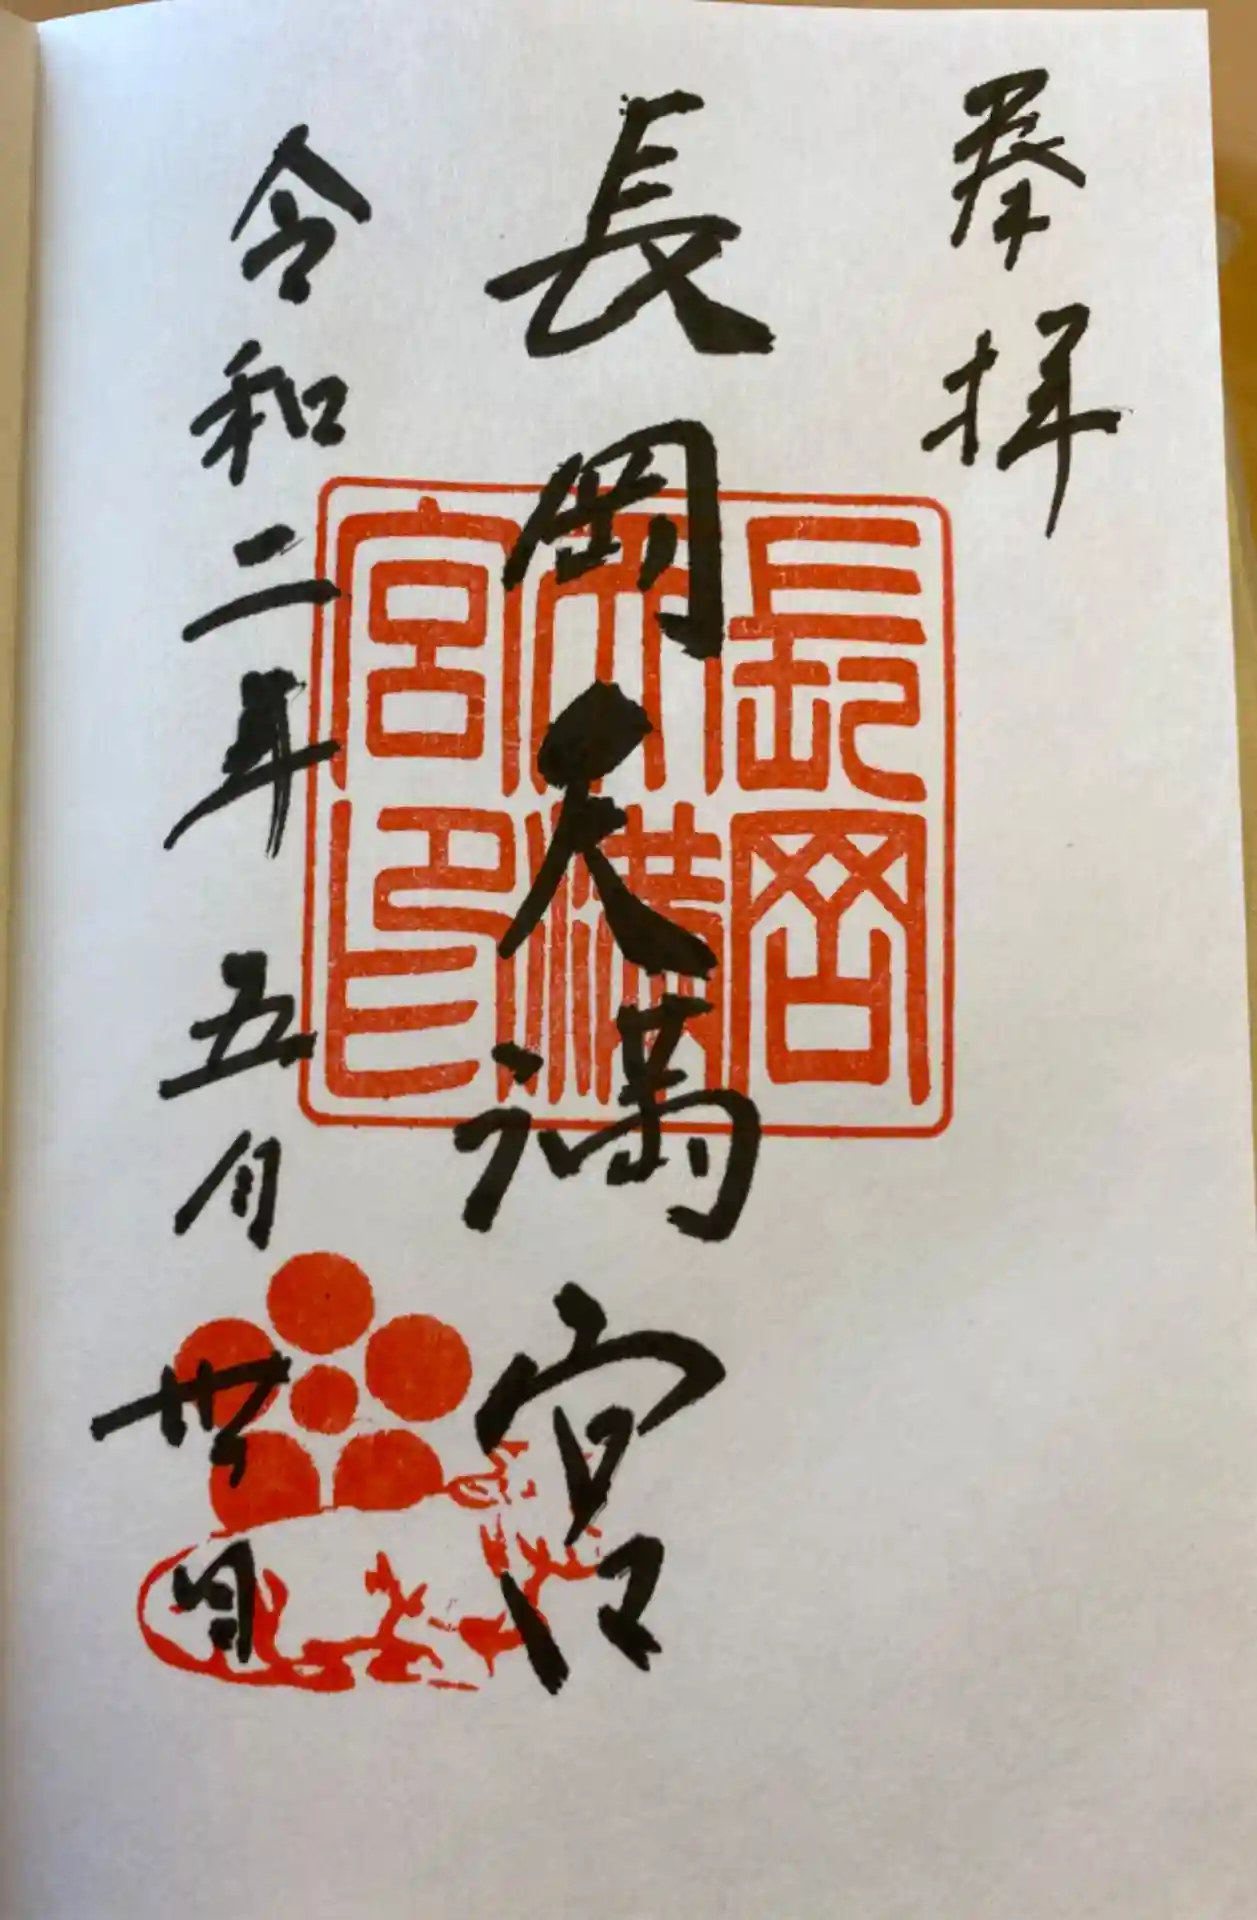 奉拝
長岡天満宮
令和二年五月丗日
長岡
天満
宮印